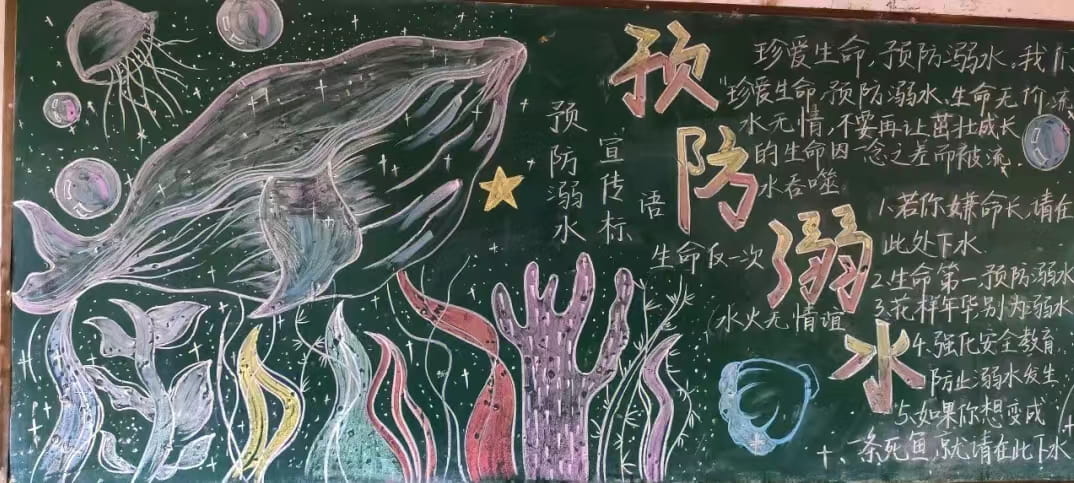 预防溺水
珍爱生命,预防溺水,我们
珍爱生命,预防溺水,生命无价,流
水无情,不要再让茁壮成长
的生命因一念之差而被流
水吞噬
预防溺水
宣传标
语
生命仅一次
水火无情谊
1.若你嫌命长,请在
此处下水
2.生命第一预防溺水
3.花样年华别为溺水
4.强化安全教育
防止溺水发生
5.如果你想变成
一条死鱼,就请在此下水